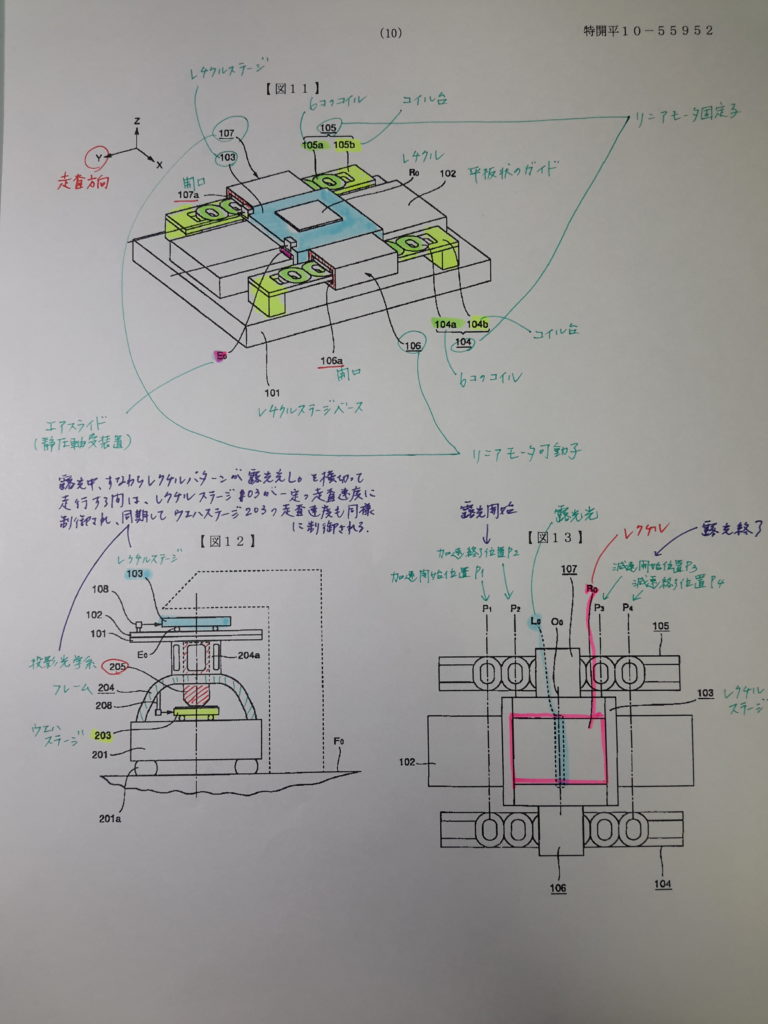 (10)
特開平１０－５５９５２
レチクルステージ
【図１１】
6コのコイル
コイル台
リニアモータ固定子
Z
Y
X
走査方向
107
103
105
105a 105b
レチクル
R₀
102
平板状のガイド
開口
107a
104a 104b
104
コイル台
6コのコイル
E₀
106a
開口
106
101
レチクルステージベース
エアスライド
(静圧軸受装置)
リニアモータ可動子
露光中、すなわちレチクルパターンが露光光L₀を横切って
走行する間は、レチクルステージ103が一定の走査速度に
制御され、同期してウエハステージ203の走査速度も同様
に制御される.
【図１２】
レチクルステージ
103
108
102
101
E₀
204a
投影光学系
205
フレーム
204
206
ウエハ
ステージ
203
201
F₀
201a
【図１３】
露光開始
露光光
レチクル
露光終了
加速終了位置P2
加速開始位置P1
減速開始位置P3
減速終了位置P4
107
R₀
P₁ P₂ L₀ O₀ P₃ P₄
105
103
レチクル
ステージ
102
106
104